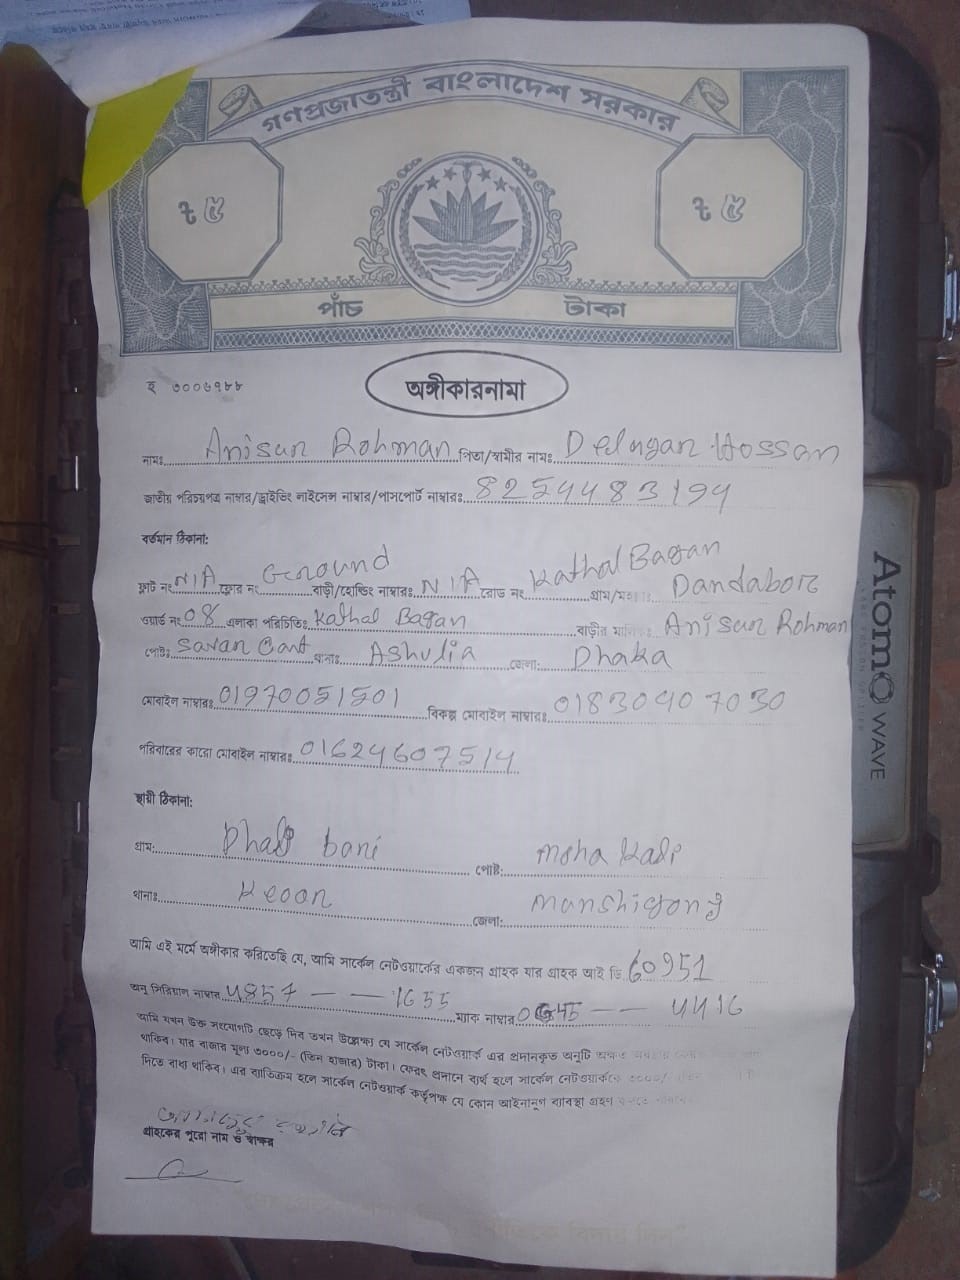 গণপ্রজাতন্ত্রী বাংলাদেশ সরকার
৳ ৫ ৳ ৫
পাঁচ টাকা
হ ৩০০৬৭৮৮
অঙ্গীকারনামা
নামঃ Anisur Rohman পিতা/স্বামীর নামঃ Hossan
জাতীয় পরিচয়পত্র নাম্বার/ড্রাইভিং লাইসেন্স নাম্বার/পাসপোর্ট নাম্বারঃ 8254483194
বর্তমান ঠিকানা:
ফ্লাট নং N/A ফ্লোর নং Ground বাড়ী/হোল্ডিং নাম্বারঃ N/A রোড নং Kathal Bagan গ্রাম/ Dandabor
ওয়ার্ড নং 08 এলাকা পরিচিতিঃ Kathal Bagan বাড়ীর Anisur Rohman
পোষ্টঃ Savar Cant থানাঃ Ashulia জেলা: Dhaka
মোবাইল নাম্বারঃ 01970051501 বিকল্প মোবাইল নাম্বারঃ 01830407030
পরিবারের কারো মোবাইল নাম্বারঃ 01624607514
স্থায়ী ঠিকানা:
গ্রাম: bari পোষ্ট: moha Kadi
থানাঃ জেলা: Manshigonj
আমি এই মর্মে অঙ্গীকার করিতেছি যে, আমি সার্কেল নেটওয়ার্কের একজন গ্রাহক যার গ্রাহক আই ডি 60951
অনু সিরিয়াল নাম্বার 4857 — — 1655 ম্যাক নাম্বার — — 4416
আমি যখন উক্ত সংযোগটি ছেড়ে দিব তখন উল্লেক্ষ্য যে সার্কেল নেটওয়ার্ক এর প্রদানকৃত অনুটি অক্ষত
থাকিব। যার বাজার মূল্য ৩০০০/- (তিন হাজার) টাকা। ফেরৎ প্রদানে ব্যর্থ হলে সার্কেল নেটওয়ার্ককে ৩০০০/-
দিতে বাধ্য থাকিব। এর ব্যতিক্রম হলে সার্কেল নেটওয়ার্ক কর্তৃপক্ষ যে কোন আইনানুগ ব্যবস্থা গ্রহণ
গ্রাহকের পুরো নাম ও স্বাক্ষর
AtomO WAVE